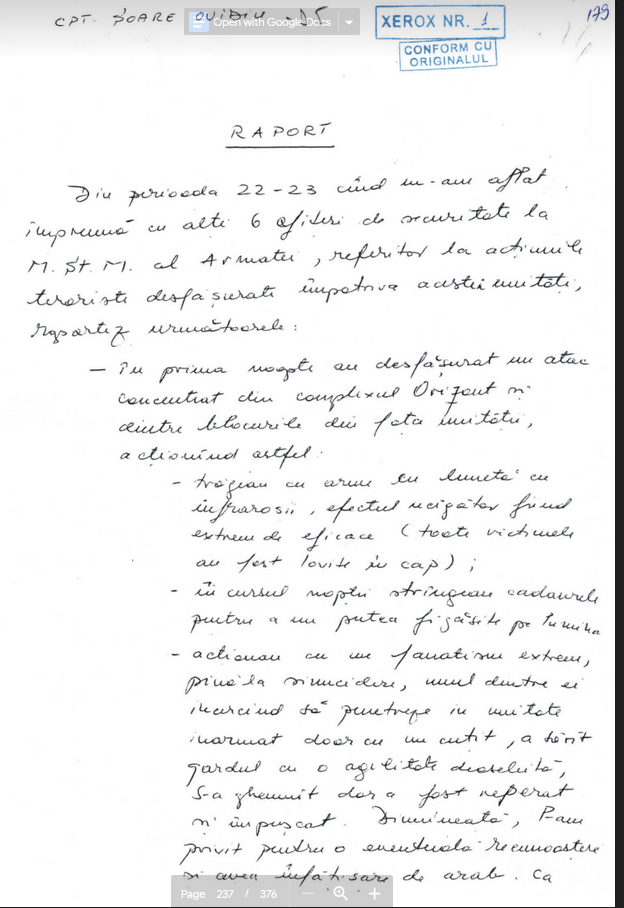 CPT. ȘOARE OVIDIU
Open with Google Docs
XEROX NR. 1
179
CONFORM CU
ORIGINALUL
RAPORT
Din perioada 22-23 cînd m-am aflat
împreună cu alți 6 ofițeri de securitate la
M.Șt.M. al Armatei, referitor la acțiunile
teroriste desfășurate împotriva acestei unități,
raportez următoarele:
- În prima noapte au desfășurat un atac
concentrat din complexul Orizont și
dintre blocurile din fața unității,
acționînd astfel:
- trăgeau cu arme cu lunetă cu
infraroșii, efectul ucigător fiind
extrem de eficace (toate victimele
au fost lovite în cap);
- în cursul nopții strîngeau cadavrele
pentru a nu putea fi găsite pe lumina
- acționau cu un fanatism extrem,
pînă la sinucidere, unul dintre ei
încercînd să penetreze în unitate
înarmat doar cu un cuțit, a sărit
gardul cu o agilitate deosebită,
s-a ghemuit dar a fost reperat
și împușcat. Dimineață, l-am
privit pentru o eventuală recunoaștere
și avea înfățișare de arab. Ca
Page 237 / 376